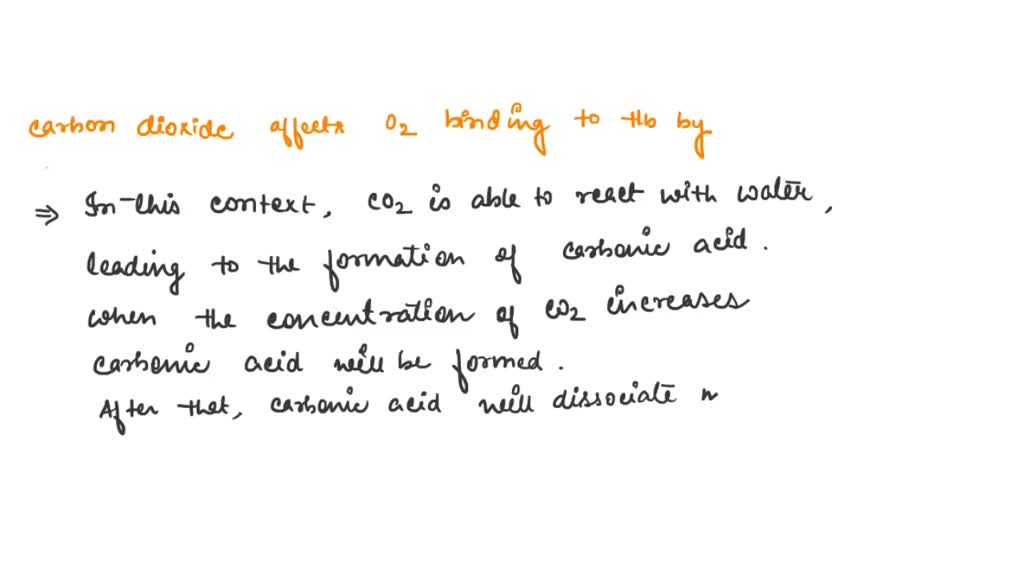 carbon dioxide affects O2 binding to Hb by
⇒ In this context, CO2 is able to react with water,
leading to the formation of carbonic acid.
when the concentration of CO2 increases
carbonic acid will be formed.
After that, carbonic acid will dissociate